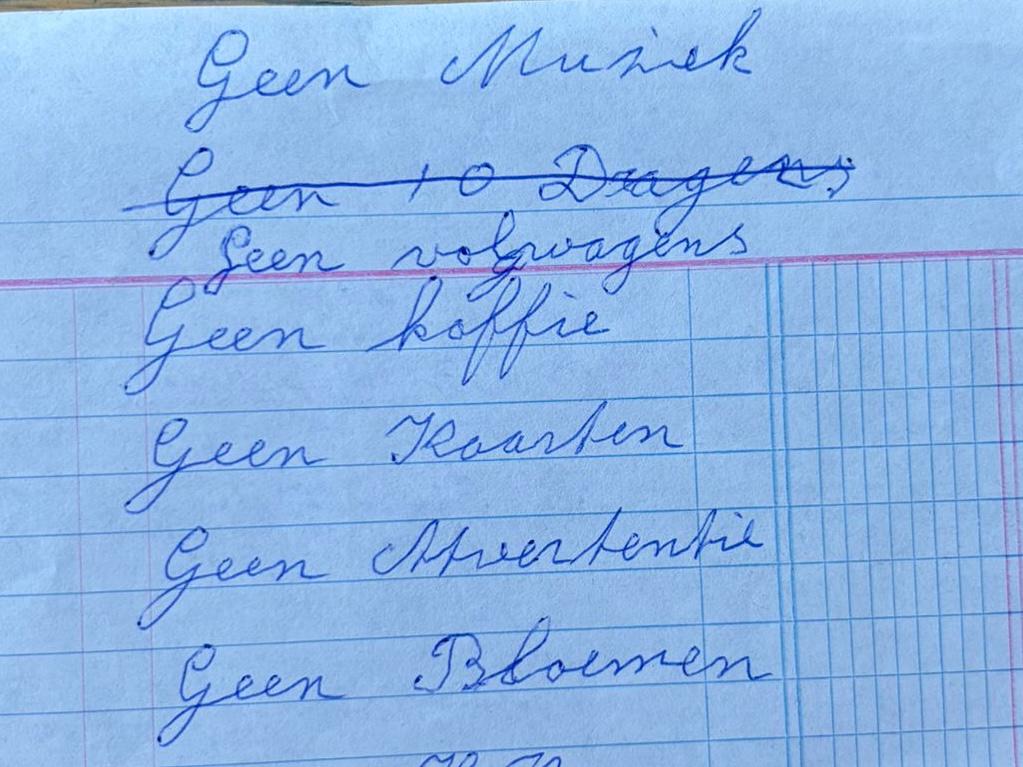 Geen Muziek
Geen 10 Dragens
Geen volgwagens
Geen koffie
Geen Kaarten
Geen Atvertentie
Geen Bloemen